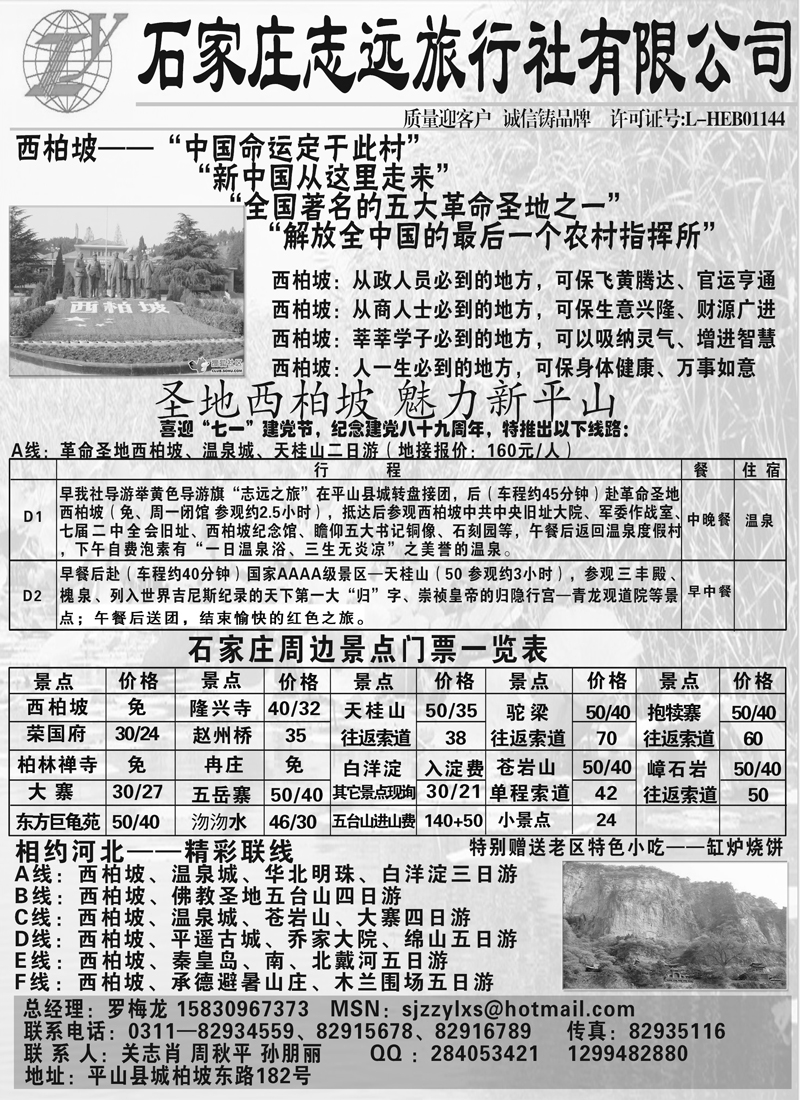 石家庄志远旅行社有限公司
质量迎客户 诚信铸品牌 许可证号:L-HEB01144
西柏坡——“中国命运定于此村”
“新中国从这里走来”
“全国著名的五大革命圣地之一”
“解放全中国的最后一个农村指挥所”
西柏坡
西柏坡：从政人员必到的地方，可保飞黄腾达、官运亨通
西柏坡：从商人士必到的地方，可保生意兴隆、财源广进
西柏坡：莘莘学子必到的地方，可以吸纳灵气、增进智慧
西柏坡：人一生必到的地方，可保身体健康、万事如意
圣地西柏坡 魅力新平山
喜迎“七一”建党节，纪念建党八十九周年，特推出以下线路：
A线：革命圣地西柏坡、温泉城、天桂山二日游（地接报价：160元/人）
行 程 餐 住宿
D1 早我社导游举黄色导游旗“志远之旅”在平山县城转盘接团，后（车程约45分钟）赴革命圣地
西柏坡（免、周一闭馆 参观约2.5小时），抵达后参观西柏坡中共中央旧址大院、军委作战室、
七届二中全会旧址、西柏坡纪念馆、瞻仰五大书记铜像、石刻园等，午餐后返回温泉度假村
，下午自费泡素有“一日温泉浴、三生无炎凉”之美誉的温泉。
中晚餐 温泉
D2 早餐后赴（车程约40分钟）国家AAAA级景区—天桂山（50 参观约3小时），参观三丰殿、
槐泉、列入世界吉尼斯纪录的天下第一大“归”字、崇祯皇帝的归隐行宫—青龙观道院等景
点；午餐后送团，结束愉快的红色之旅。
早中餐
石家庄周边景点门票一览表
景点 价格 景点 价格 景点 价格 景点 价格 景点 价格
西柏坡 免 隆兴寺 40/32 天桂山 50/35 驼梁 50/40 抱犊寨 50/40
荣国府 30/24 赵州桥 35 往返索道 38 往返索道 70 往返索道 60
柏林禅寺 免 冉庄 免 白洋淀 入淀费 苍岩山 50/40 嶂石岩 50/40
大寨 30/27 五岳寨 50/40 其它景点现询 30/21 单程索道 42 往返索道 50
东方巨龟苑 50/40 沕沕水 46/30 五台山进山费 140+50 小景点 24
相约河北——精彩联线
特别赠送老区特色小吃——缸炉烧饼
A线：西柏坡、温泉城、华北明珠、白洋淀三日游
B线：西柏坡、佛教圣地五台山四日游
C线：西柏坡、温泉城、苍岩山、大寨四日游
D线：西柏坡、平遥古城、乔家大院、绵山五日游
E线：西柏坡、秦皇岛、南、北戴河五日游
F线：西柏坡、承德避暑山庄、木兰围场五日游
总经理：罗梅龙 15830967373 MSN：sjzzylxs@hotmail.com
联系电话：0311—82934559、82915678、82916789 传真：82935116
联 系 人：关志肖 周秋平 孙朋丽 QQ：284053421 1299482880
地址：平山县城柏坡东路182号